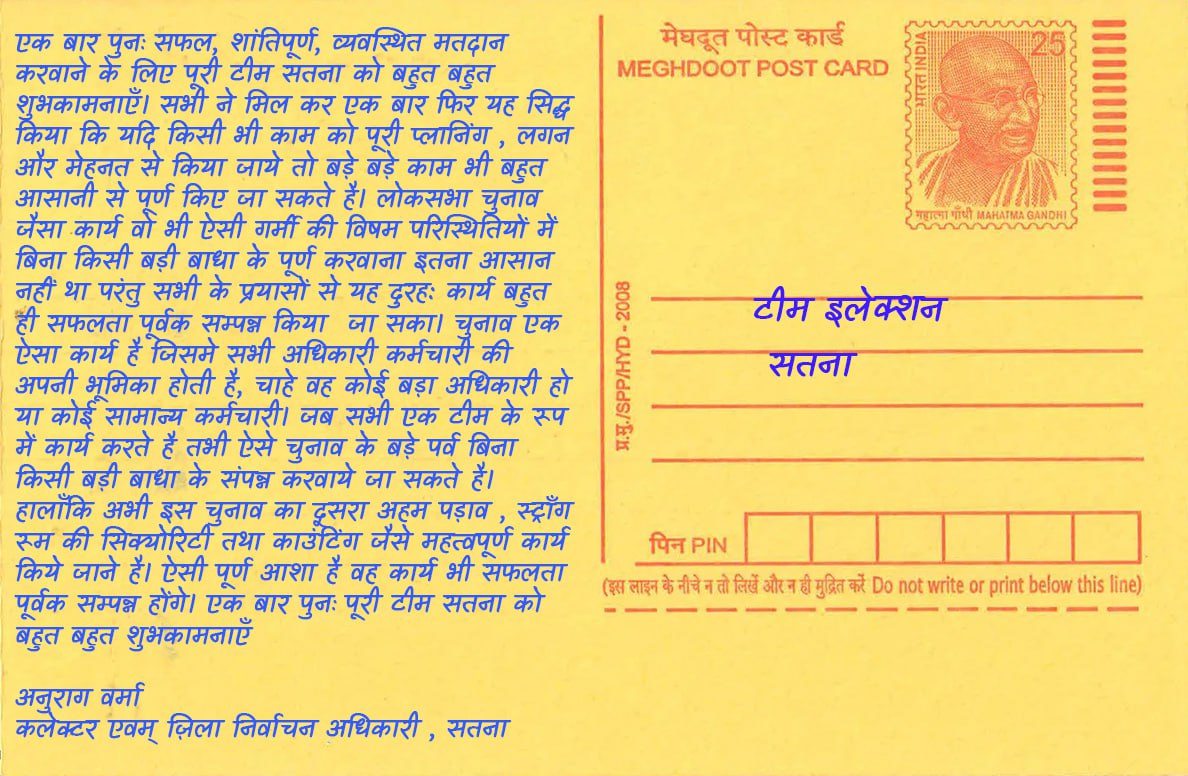 एक बार पुनः सफल, शांतिपूर्ण, व्यवस्थित मतदान
करवाने के लिए पूरी टीम सतना को बहुत बहुत
शुभकामनाएँ। सभी ने मिल कर एक बार फिर यह सिद्ध
किया कि यदि किसी भी काम को पूरी प्लानिंग , लगन
और मेहनत से किया जाये तो बड़े बड़े काम भी बहुत
आसानी से पूर्ण किए जा सकते है। लोकसभा चुनाव
जैसा कार्य वो भी ऐसी गर्मी की विषम परिस्थितियों में
बिना किसी बड़ी बाधा के पूर्ण करवाना इतना आसान
नहीं था परंतु सभी के प्रयासों से यह दुरहः कार्य बहुत
ही सफलता पूर्वक सम्पन्न किया जा सका। चुनाव एक
ऐसा कार्य है जिसमे सभी अधिकारी कर्मचारी की
अपनी भूमिका होती है, चाहे वह कोई बड़ा अधिकारी हो
या कोई सामान्य कर्मचारी। जब सभी एक टीम के रूप
में कार्य करते है तभी ऐसे चुनाव के बड़े पर्व बिना
किसी बड़ी बाधा के संपन्न करवाये जा सकते है।
हालाँकि अभी इस चुनाव का दूसरा अहम पड़ाव , स्ट्राँग
रूम की सिक्योरिटी तथा काउंटिंग जैसे महत्वपूर्ण कार्य
किये जाने है। ऐसी पूर्ण आशा है वह कार्य भी सफलता
पूर्वक सम्पन्न होंगे। एक बार पुनः पूरी टीम सतना को
बहुत बहुत शुभकामनाएँ
अनुराग वर्मा
कलेक्टर एवम् ज़िला निर्वाचन अधिकारी , सतना
मेघदूत पोस्ट कार्ड
MEGHDOOT POST CARD
भारत INDIA
25
महात्मा गाँधी MAHATMA GANDHI
प्र.मु./SPP/HYD - 2008
टीम इलेक्शन
सतना
पिन PIN
(इस लाइन के नीचे न तो लिखें और न ही मुद्रित करें Do not write or print below this line)